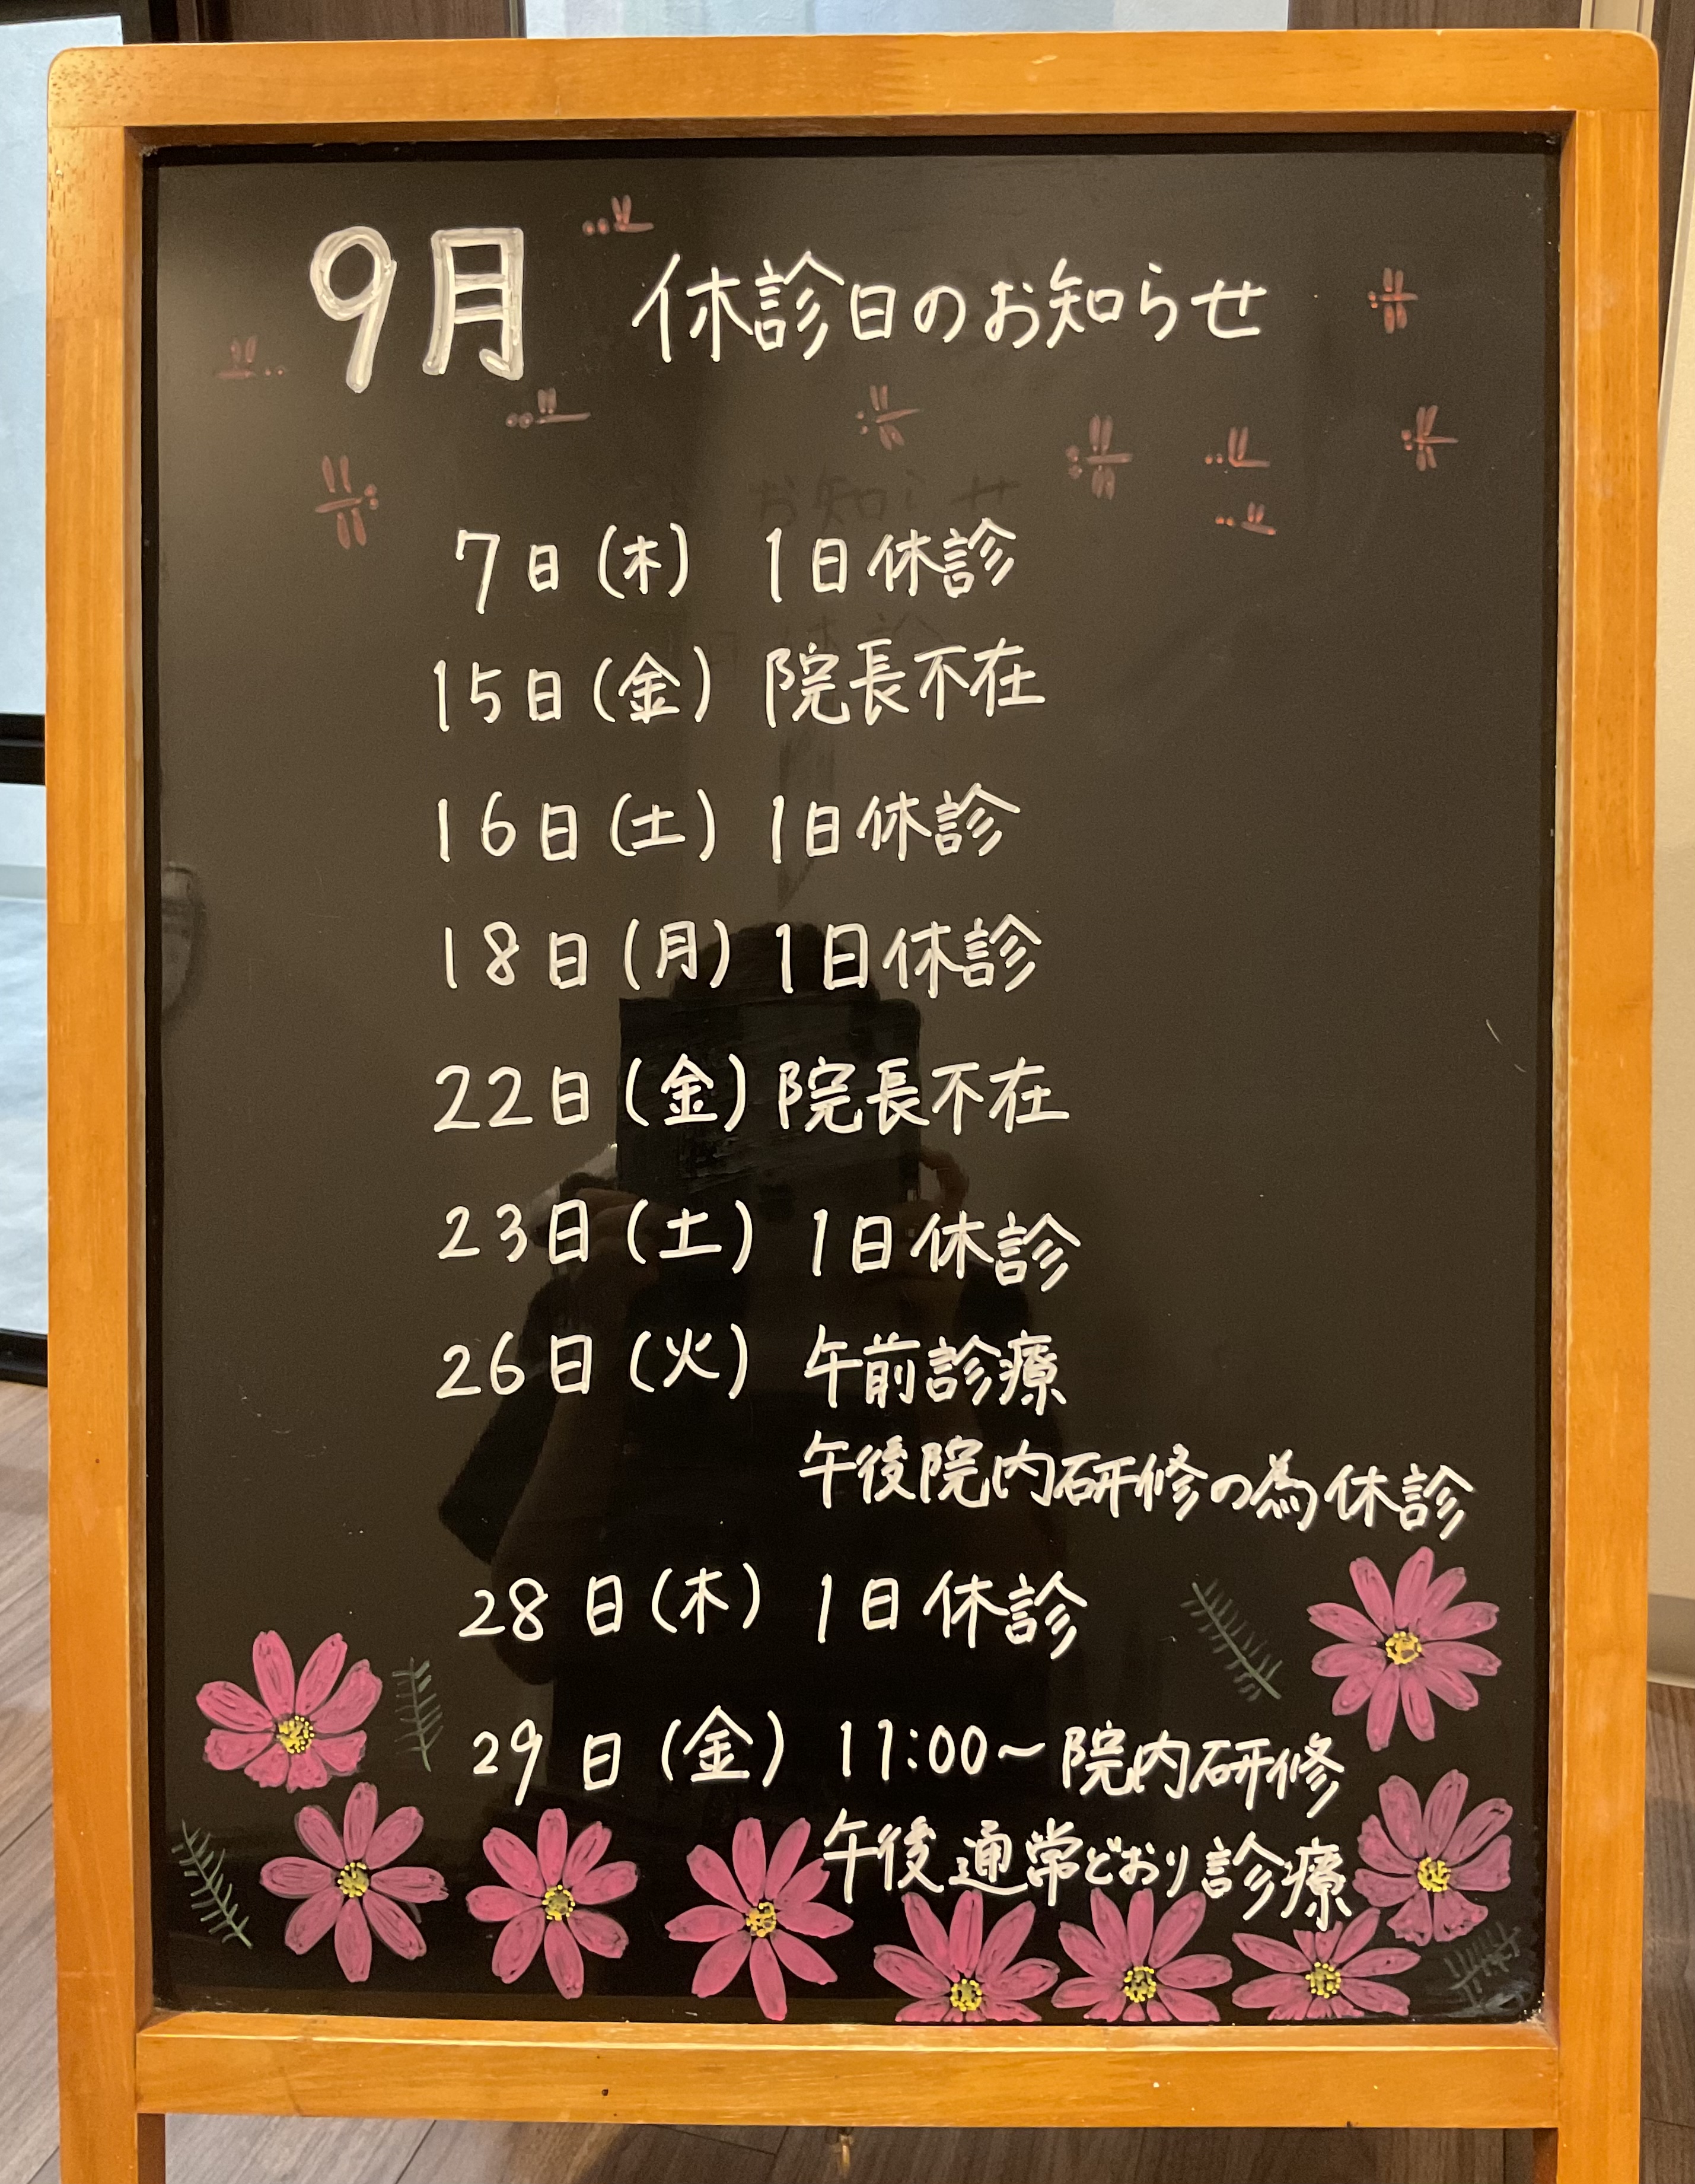 9月 休診日のお知らせ
7日(木) 1日休診
15日(金) 院長不在
16日(土) 1日休診
18日(月) 1日休診
22日(金) 院長不在
23日(土) 1日休診
26日(火) 午前診療
午後院内研修の為休診
28日(木) 1日休診
29日(金) 11:00~院内研修
午後通常どおり診療